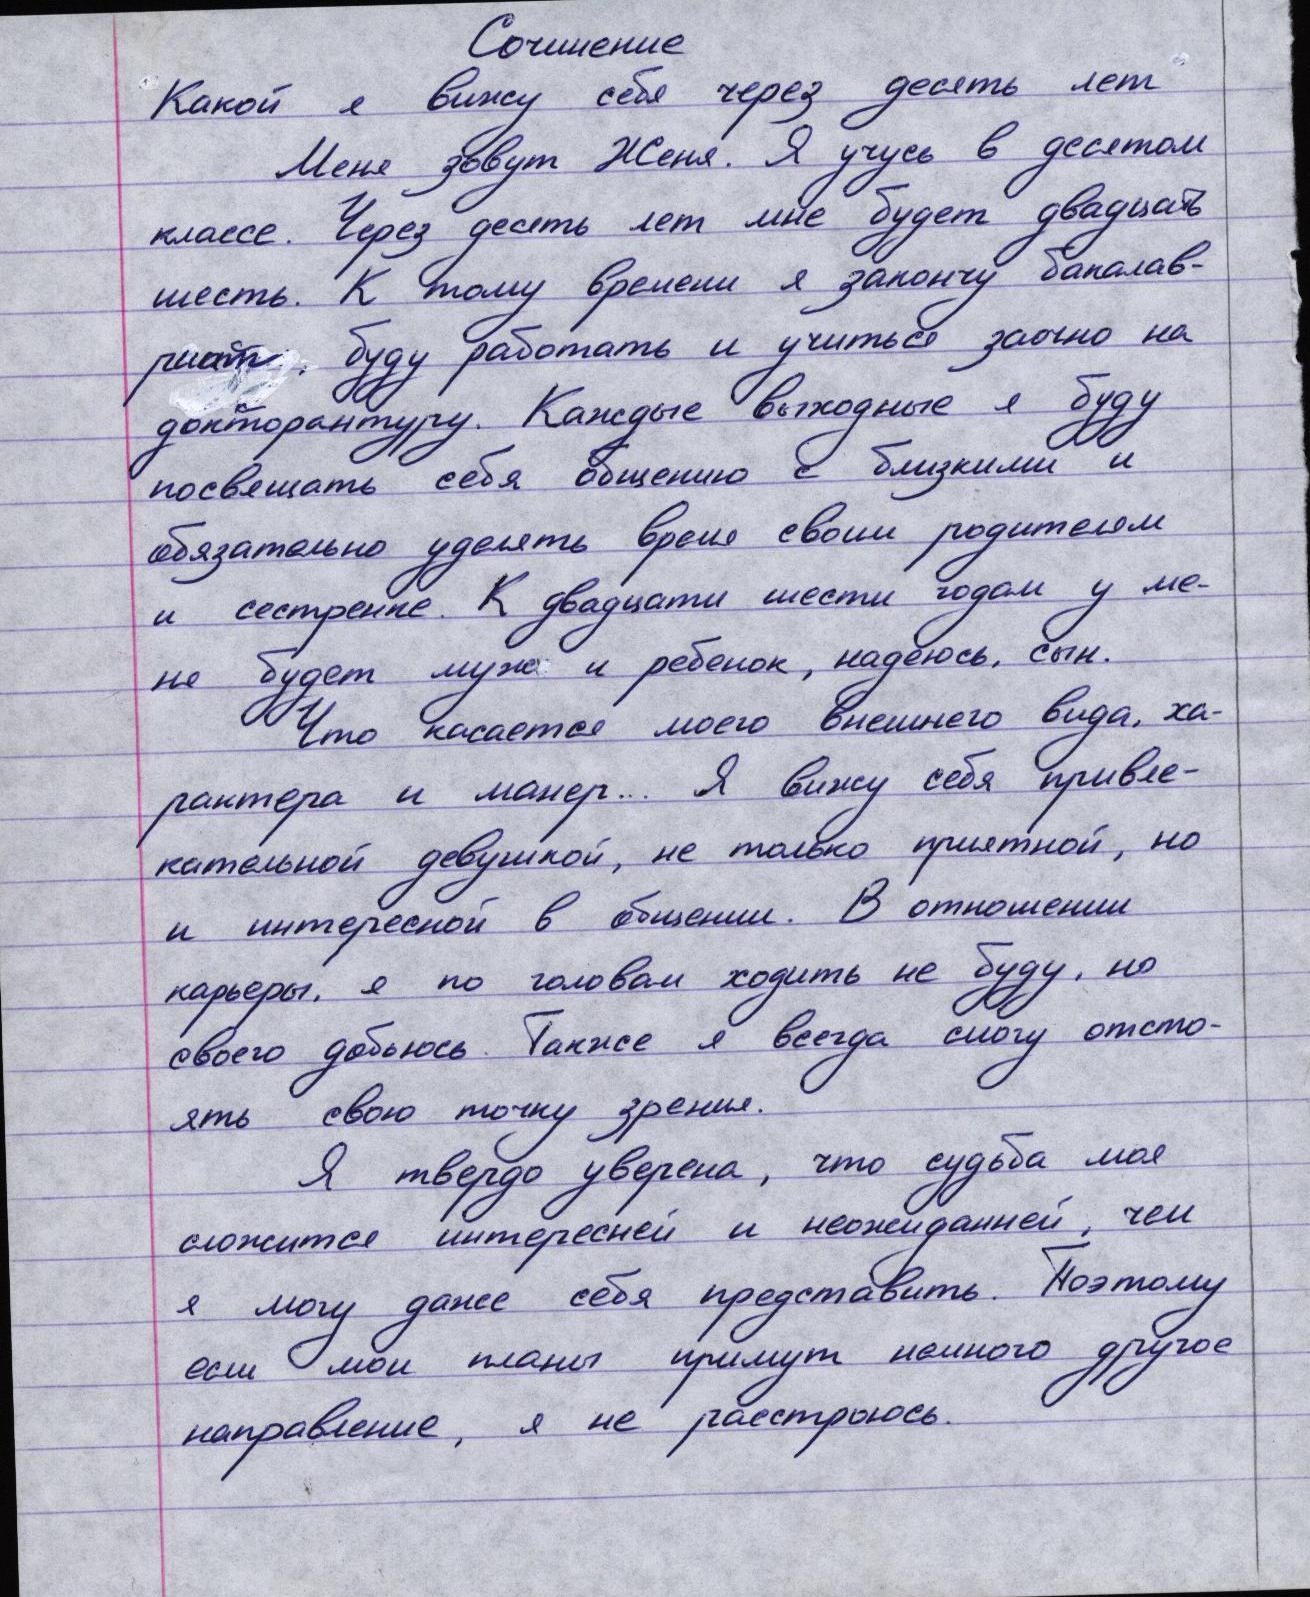 Сочинение
Какой я вижу себя через десять лет
Меня зовут Женя. Я учусь в десятом
классе. Через десять лет мне будет двадцать
шесть. К тому времени я закончу бакалав-
риат, буду работать и учиться заочно на
докторантуру. Каждые выходные я буду
посвещать себя общению с близкими и
обязательно уделять время своим родителям
и сестренке. К двадцати шести годам у ме-
ня будет муж и ребенок, надеюсь, сын.
Что касается моего внешнего вида, ха-
рактера и манер... Я вижу себя привле-
кательной девушкой, не только приятной, но
и интересной в общении. В отношении
карьеры, я по головам ходить не буду, но
своего добьюсь. Также я всегда смогу отсто-
ять свою точку зрения.
Я твердо уверена, что судьба моя
сложится интересней и неожиданней, чем
я могу даже себя представить. Поэтому
если мои планы примут немного другое
направление, я не расстроюсь.